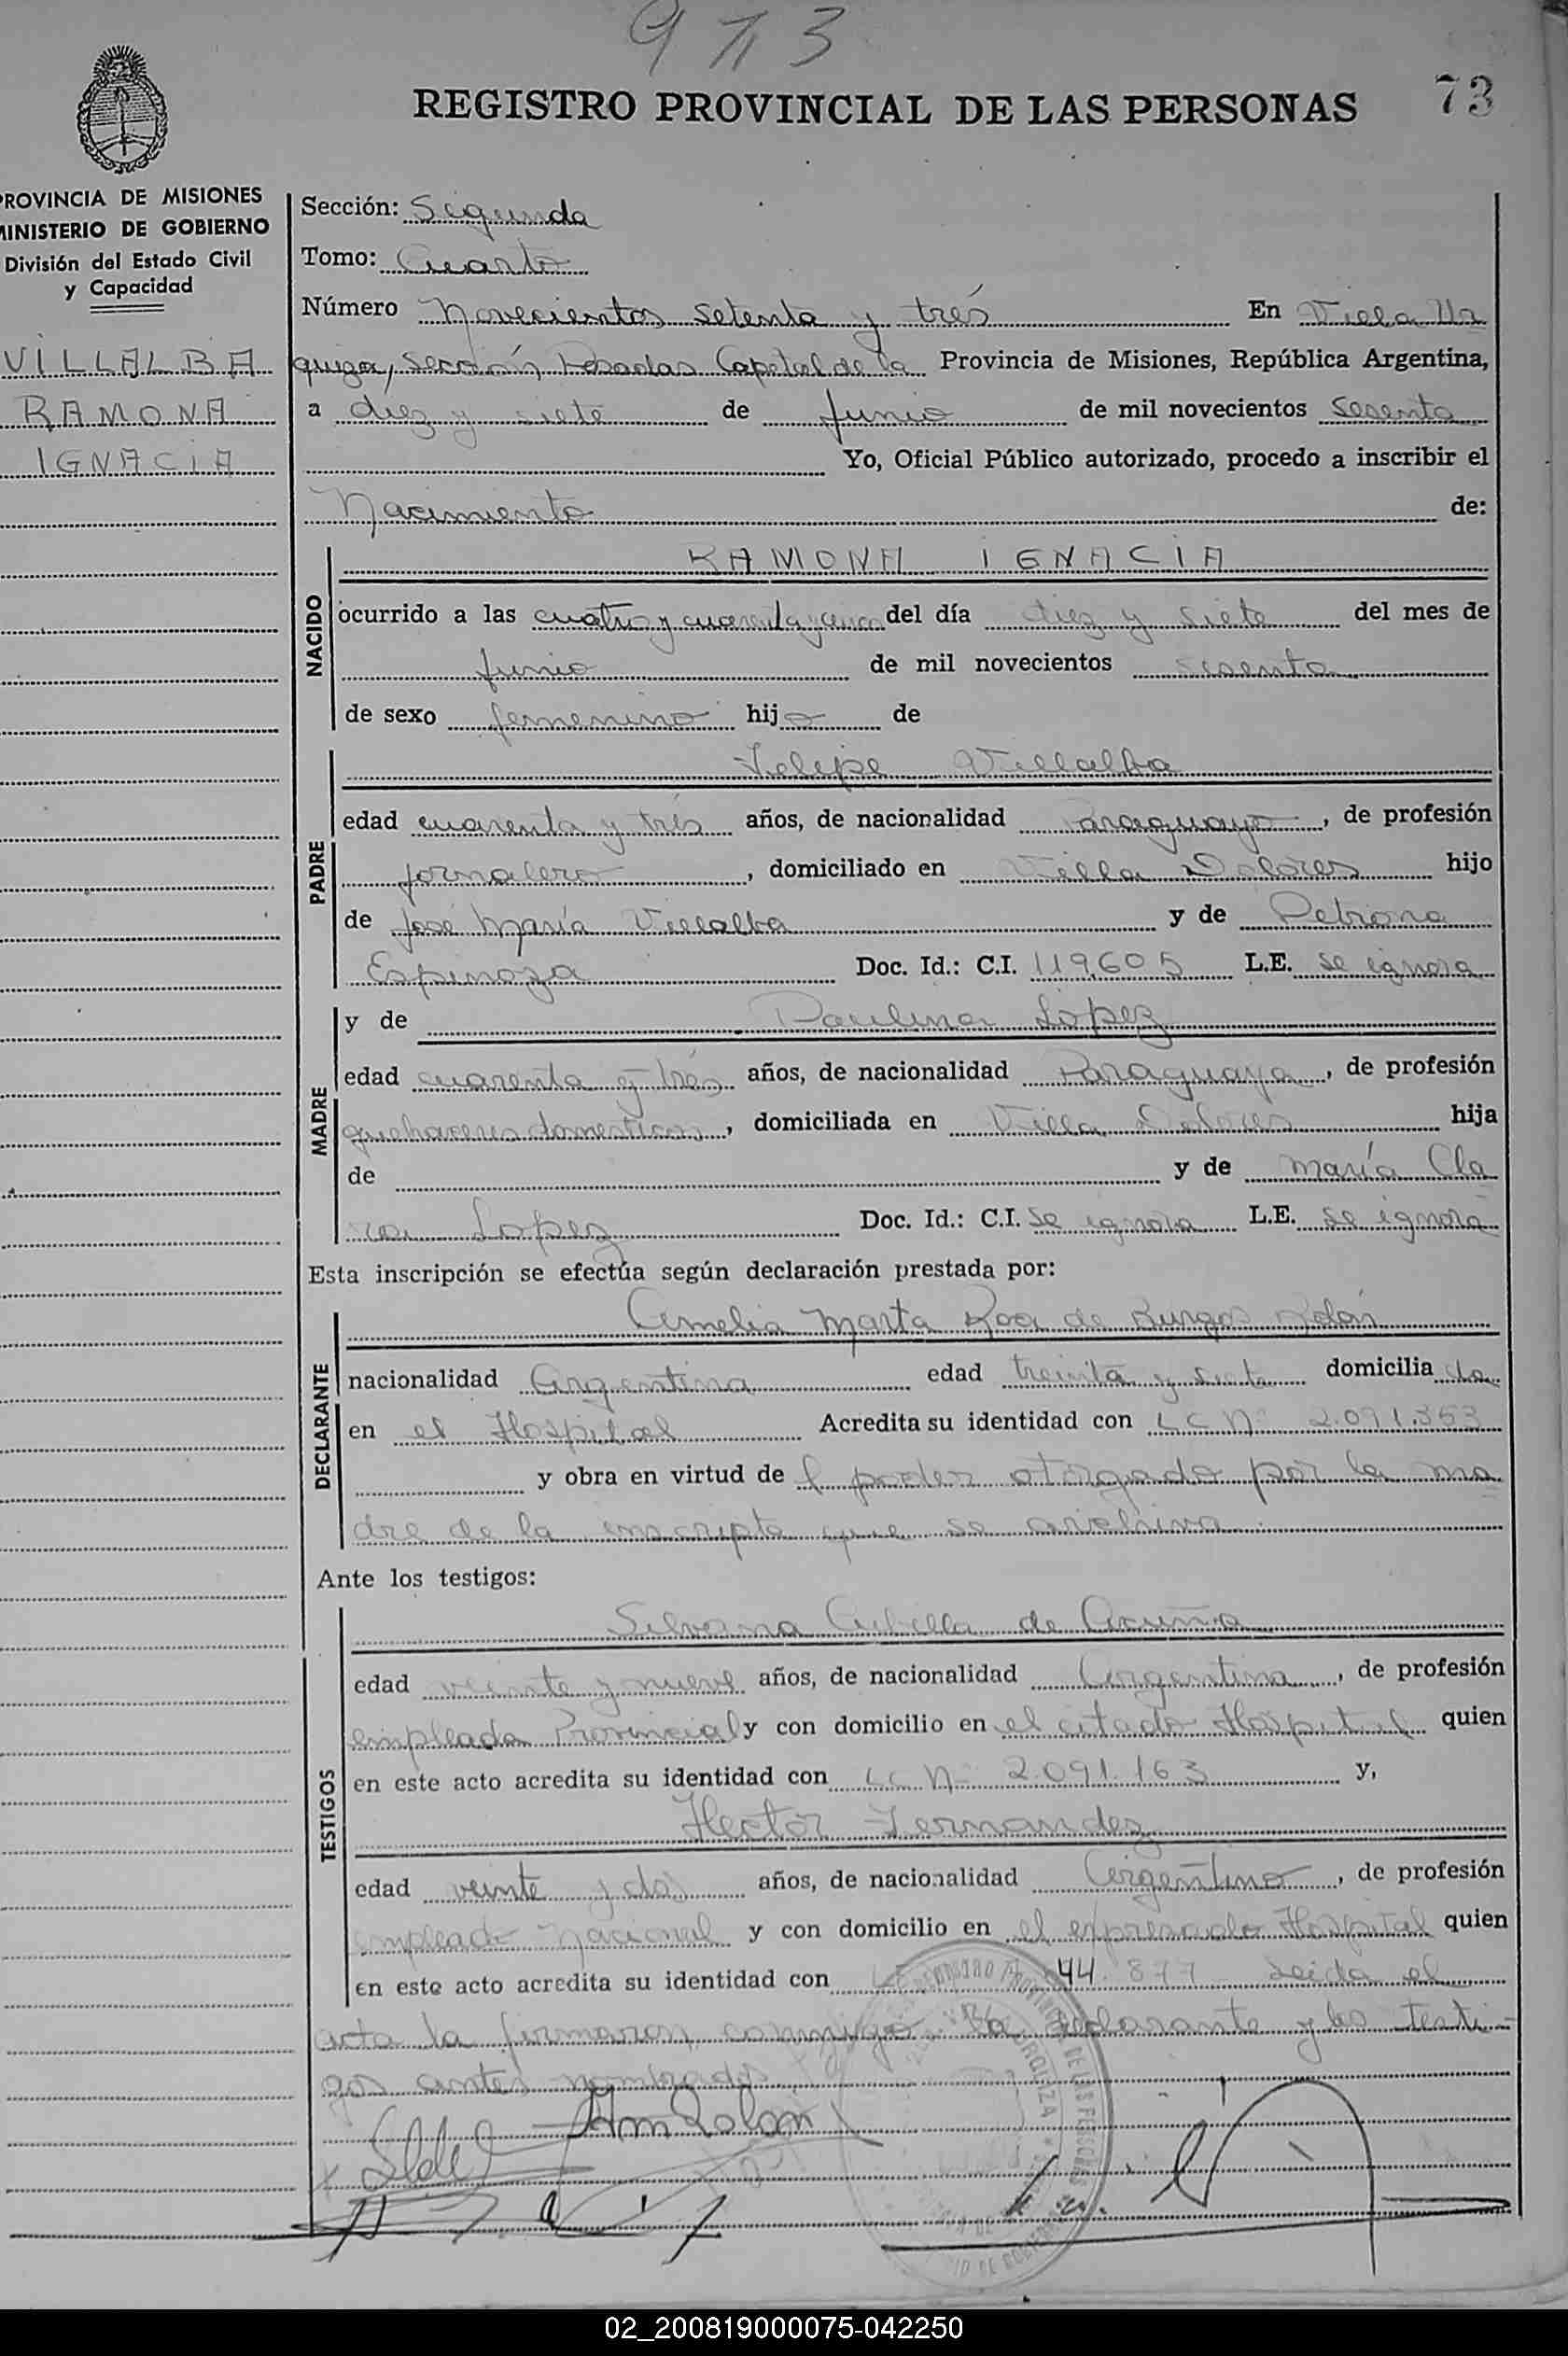 973
REGISTRO PROVINCIAL DE LAS PERSONAS 73
PROVINCIA DE MISIONES
MINISTERIO DE GOBIERNO
División del Estado Civil
y Capacidad
VILLALBA
RAMONA
IGNACIA
Sección: Segunda
Tomo: Cuarto
Número Novecientos setenta y trés En Villa Ur
quiza, Sección Posadas Capital de la Provincia de Misiones, República Argentina,
a diez y siete de Junio de mil novecientos sesenta
Yo, Oficial Público autorizado, procedo a inscribir el
Nacimiento de:
NACIDO
RAMONA IGNACIA
ocurrido a las cuatro y cuarenta y cinco del día diez y siete del mes de
Junio de mil novecientos sesenta
de sexo femenino hija de
PADRE
Felipe Villalba
edad cuarenta y trés años, de nacionalidad Paraguayo, de profesión
jornalero, domiciliado en Villa Dolores hijo
de José María Villalba y de Petrona
Espinoza Doc. Id.: C.I. 119.605 L.E. se ignora
MADRE
y de Paulina Lopez
edad cuarenta y trés años, de nacionalidad Paraguaya, de profesión
quehaceres domesticos, domiciliada en Villa Dolores hija
de y de María Cla
ra Lopez Doc. Id.: C.I. Se ignora L.E. se ignora
Esta inscripción se efectúa según declaración prestada por:
DECLARANTE
Amelia Marta Roa de Burgos Rolón
nacionalidad Argentina edad treinta y siete domiciliada
en el Hospital Acredita su identidad con L C N° 2.091.353
y obra en virtud del poder otorgado por la ma
dre de la inscripta que se archiva
Ante los testigos:
TESTIGOS
Silvana Cubilla de Acuña
edad veinte y nueve años, de nacionalidad Argentina, de profesión
empleada Provincial y con domicilio en el citado Hospital quien
en este acto acredita su identidad con LC N° 2.091.163 y,
Hector Fernandez
edad veinte y dos años, de nacionalidad Argentino, de profesión
empleado Nacional y con domicilio en el expresado Hospital quien
en este acto acredita su identidad con 44.877 Leida el
acta la firmaron conmigo la declarante y los testi-
gos antes nombrados
02_200819000075-042250